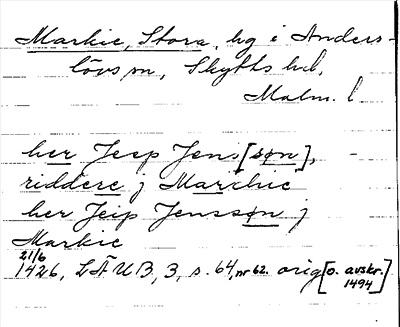 Markie, Stora, hg i Anders-
lövs sn, Skytts hd,
Malm. l
her Jeep Jens[søn],
riddere j Marchie
her Jeip Jenssøn j
Markie
21/6
1426, LÄUB, 3, s. 64, nr 62. orig [o. avskr.
1494]